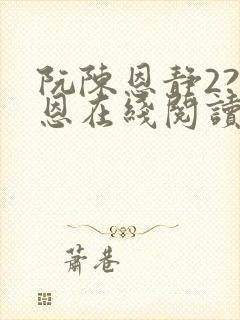 阮陳恩靜22
恩在綫閱讀
蕭巷